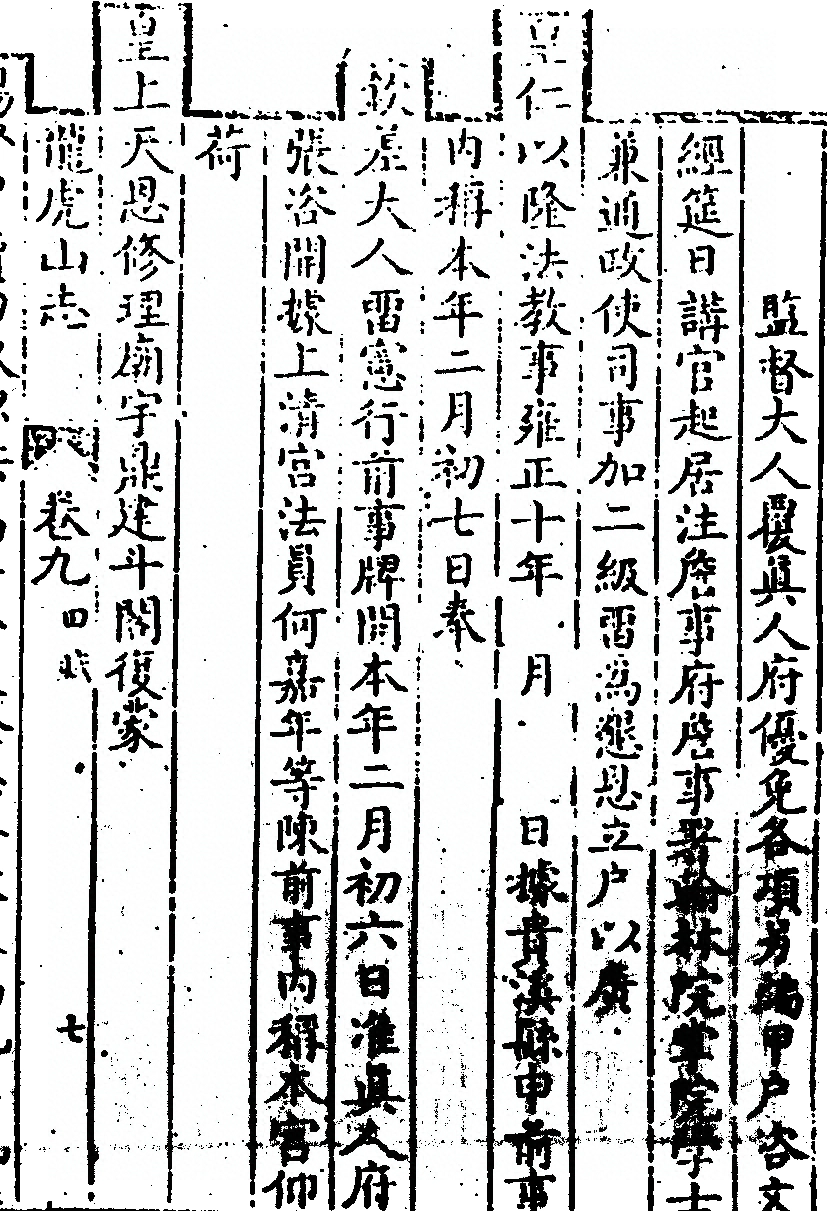 監督大人覆眞人府優免各項另編甲戶咨文
經筵日講官起居注詹事府詹事署翰林院掌院學士
兼通政使司事加二級雷爲懇恩立戶以廣
皇仁以隆法教事雍正十年　月　日據貴溪縣申前事
內稱本年二月初七日奉
欽差大人雷憲行前事牌開本年二月初六日准眞人府
張咨開據上清宮法員何嘉年等陳前事內稱本宮仰
荷
皇上天恩修理廟宇鼎建斗閣復蒙
龍虎山志　卷九　田賦　七